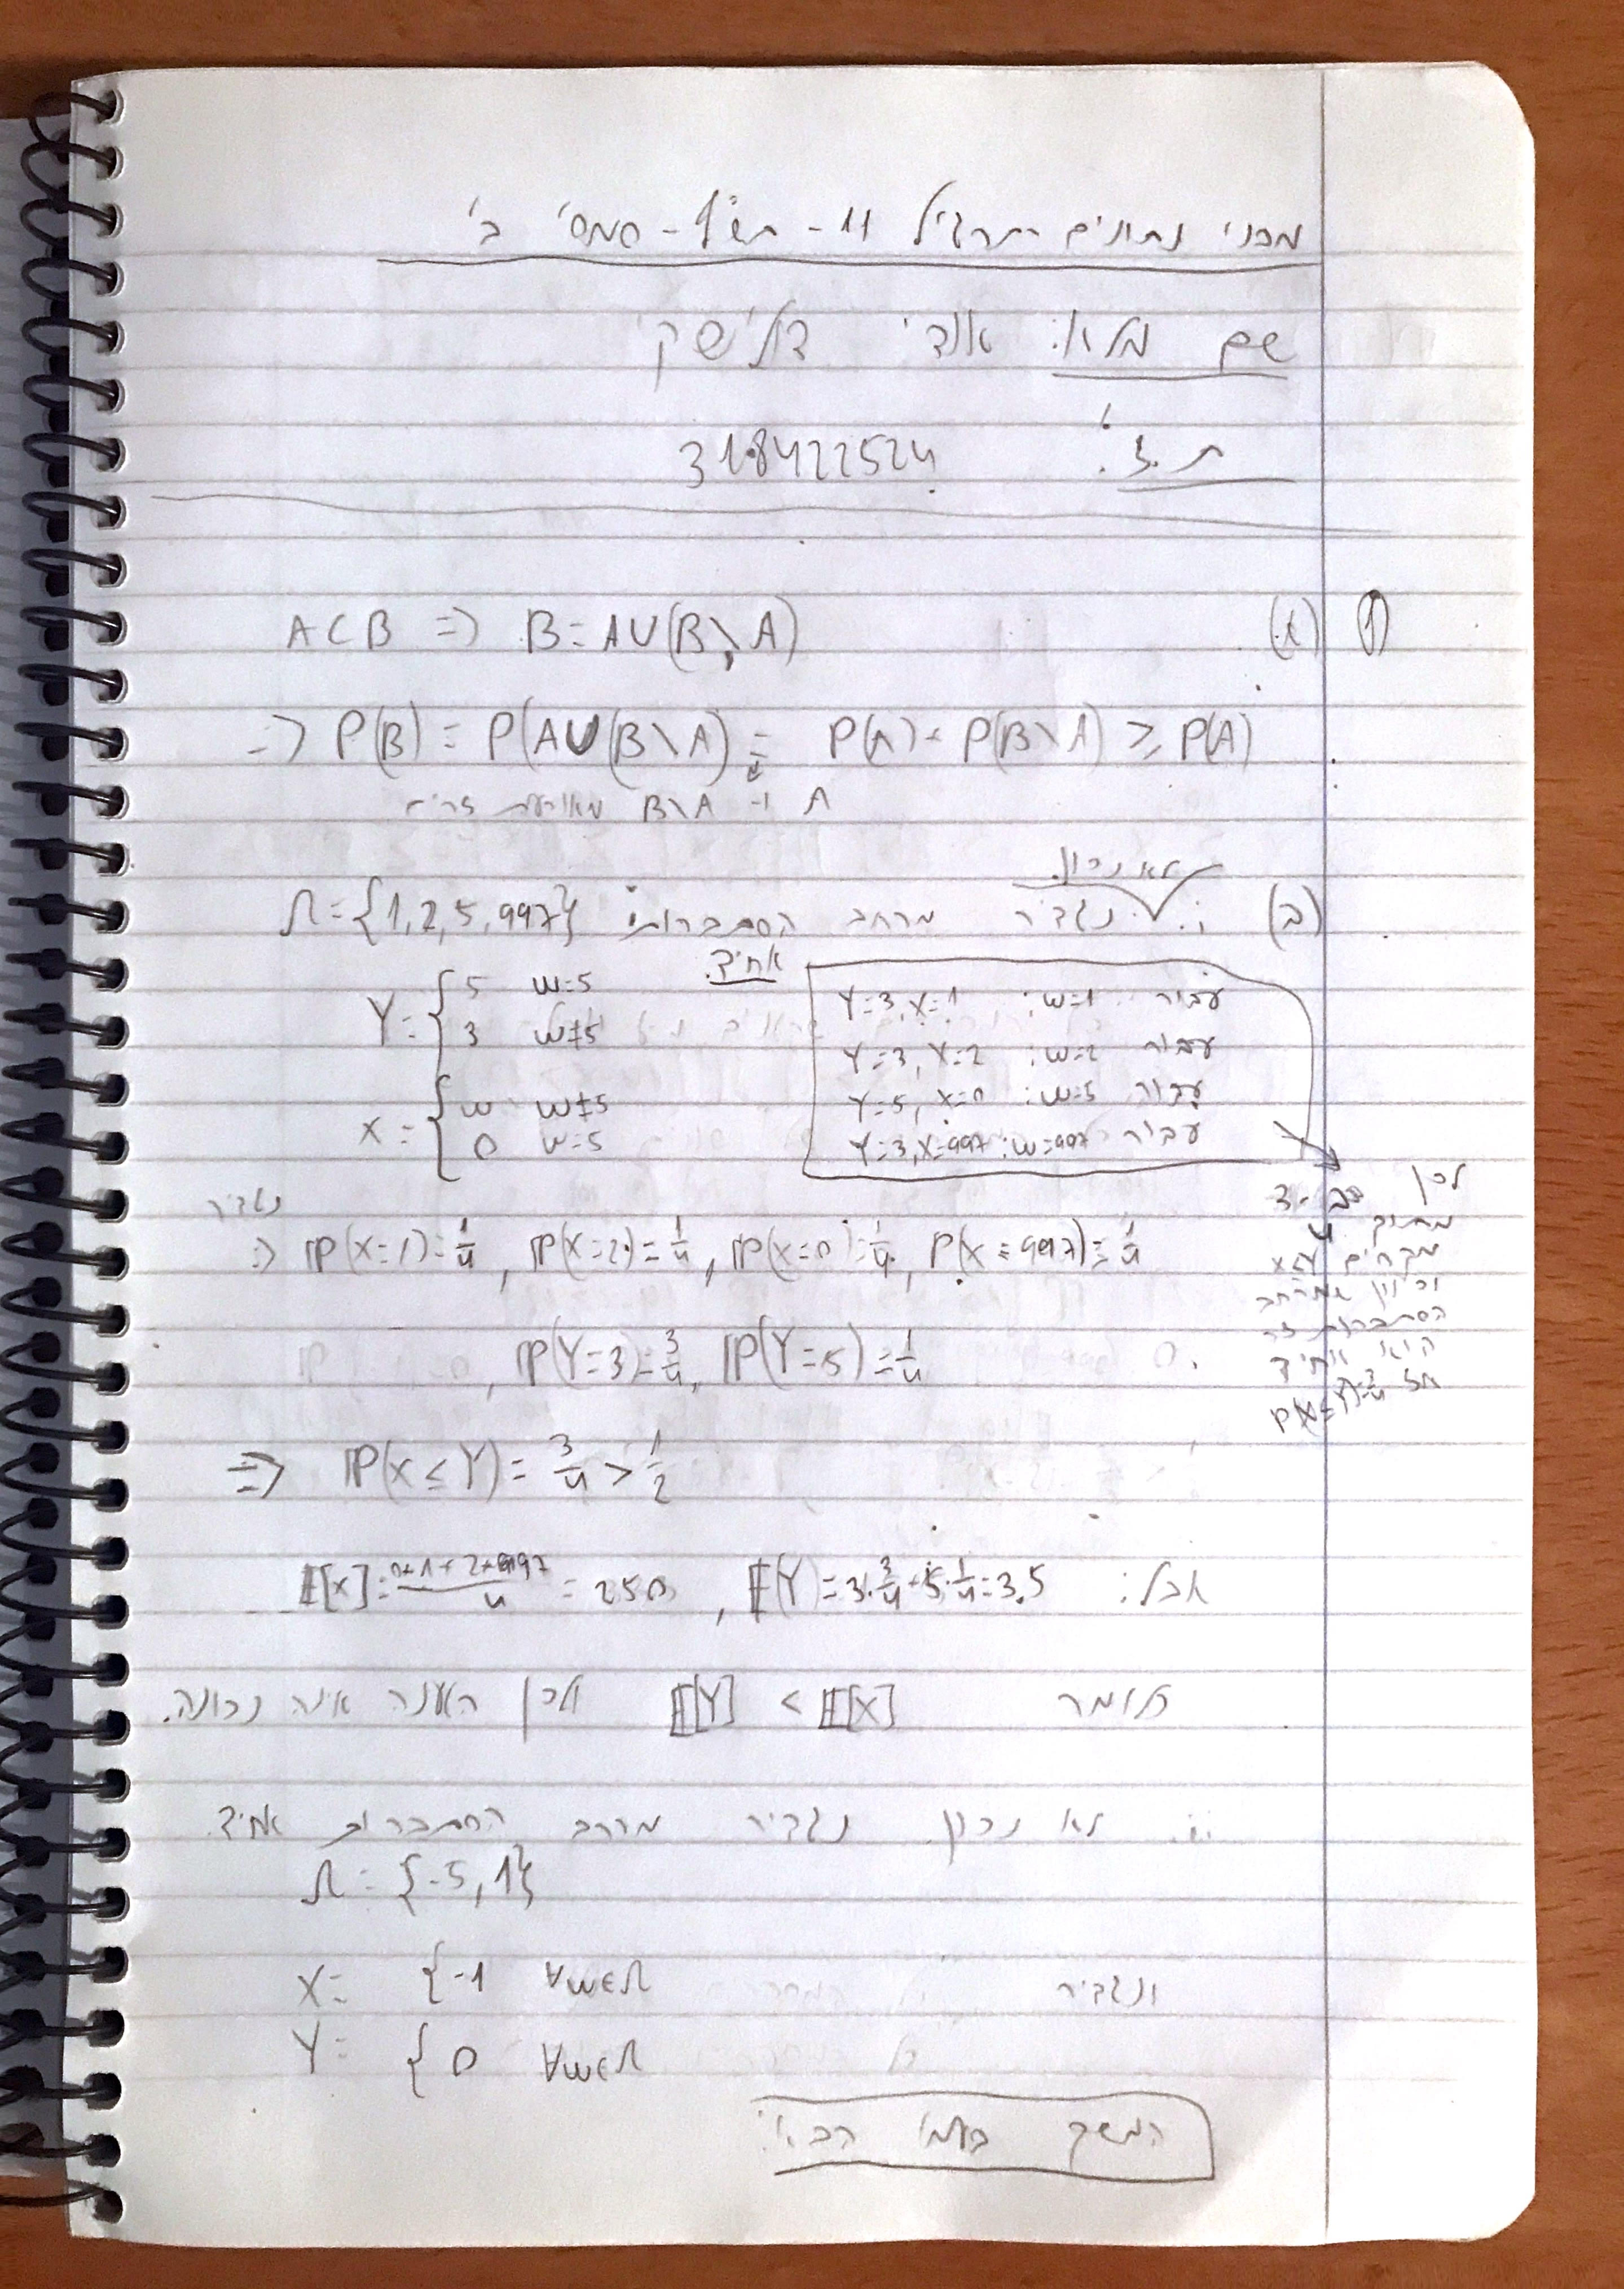 מבני נתונים תרגיל 11 - תש"ף - סמס' ב'
שם מלא:
ת.ז: 318422524
① (א) A⊂B => B=A∪(B\A)
=> P(B)=P(A∪(B\A)) = P(A)+P(B\A) ≥ P(A)
A ו- B\A מאורעות זרים
לא נכון.
(ב) i. נגדיר מרחב הסתברותי Ω={1,2,5,997}
אחיד
Y= { 5 w=5
3 w≠5
X= { w w≠5
0 w=5
עבור w=1: Y=3, X=1
עבור w=2: Y=3, X=2
עבור w=5: Y=5, X=0
עבור w=997: Y=3, X=997
לכן ב-3
מתוך
מקרים X≤Y
וכיוון שמרחב
הסתברות זה
הוא אחיד
אז P(X≤Y)=3/4
נגדיר
=> ℙ(X=1)=1/4, ℙ(X=2)=1/4, ℙ(X=0)=1/4, P(X=997)=1/4
, ℙ(Y=3)=3/4, ℙ(Y=5)=1/4
=> ℙ(X≤Y)=3/4>1/2
אבל: 𝔼[X]=(0+1+2+997)/4=250, 𝔼(Y)=3·3/4+5·1/4=3.5
כלומר 𝔼[Y] < 𝔼[X] ולכן הטענה אינה נכונה.
ii. לא נכון. נגדיר מרחב הסתברות אחיד
Ω={-5,1}
ונגדיר X= {-1 ∀w∈Ω
Y= {0 ∀w∈Ω
המשך בעמ' הבא: